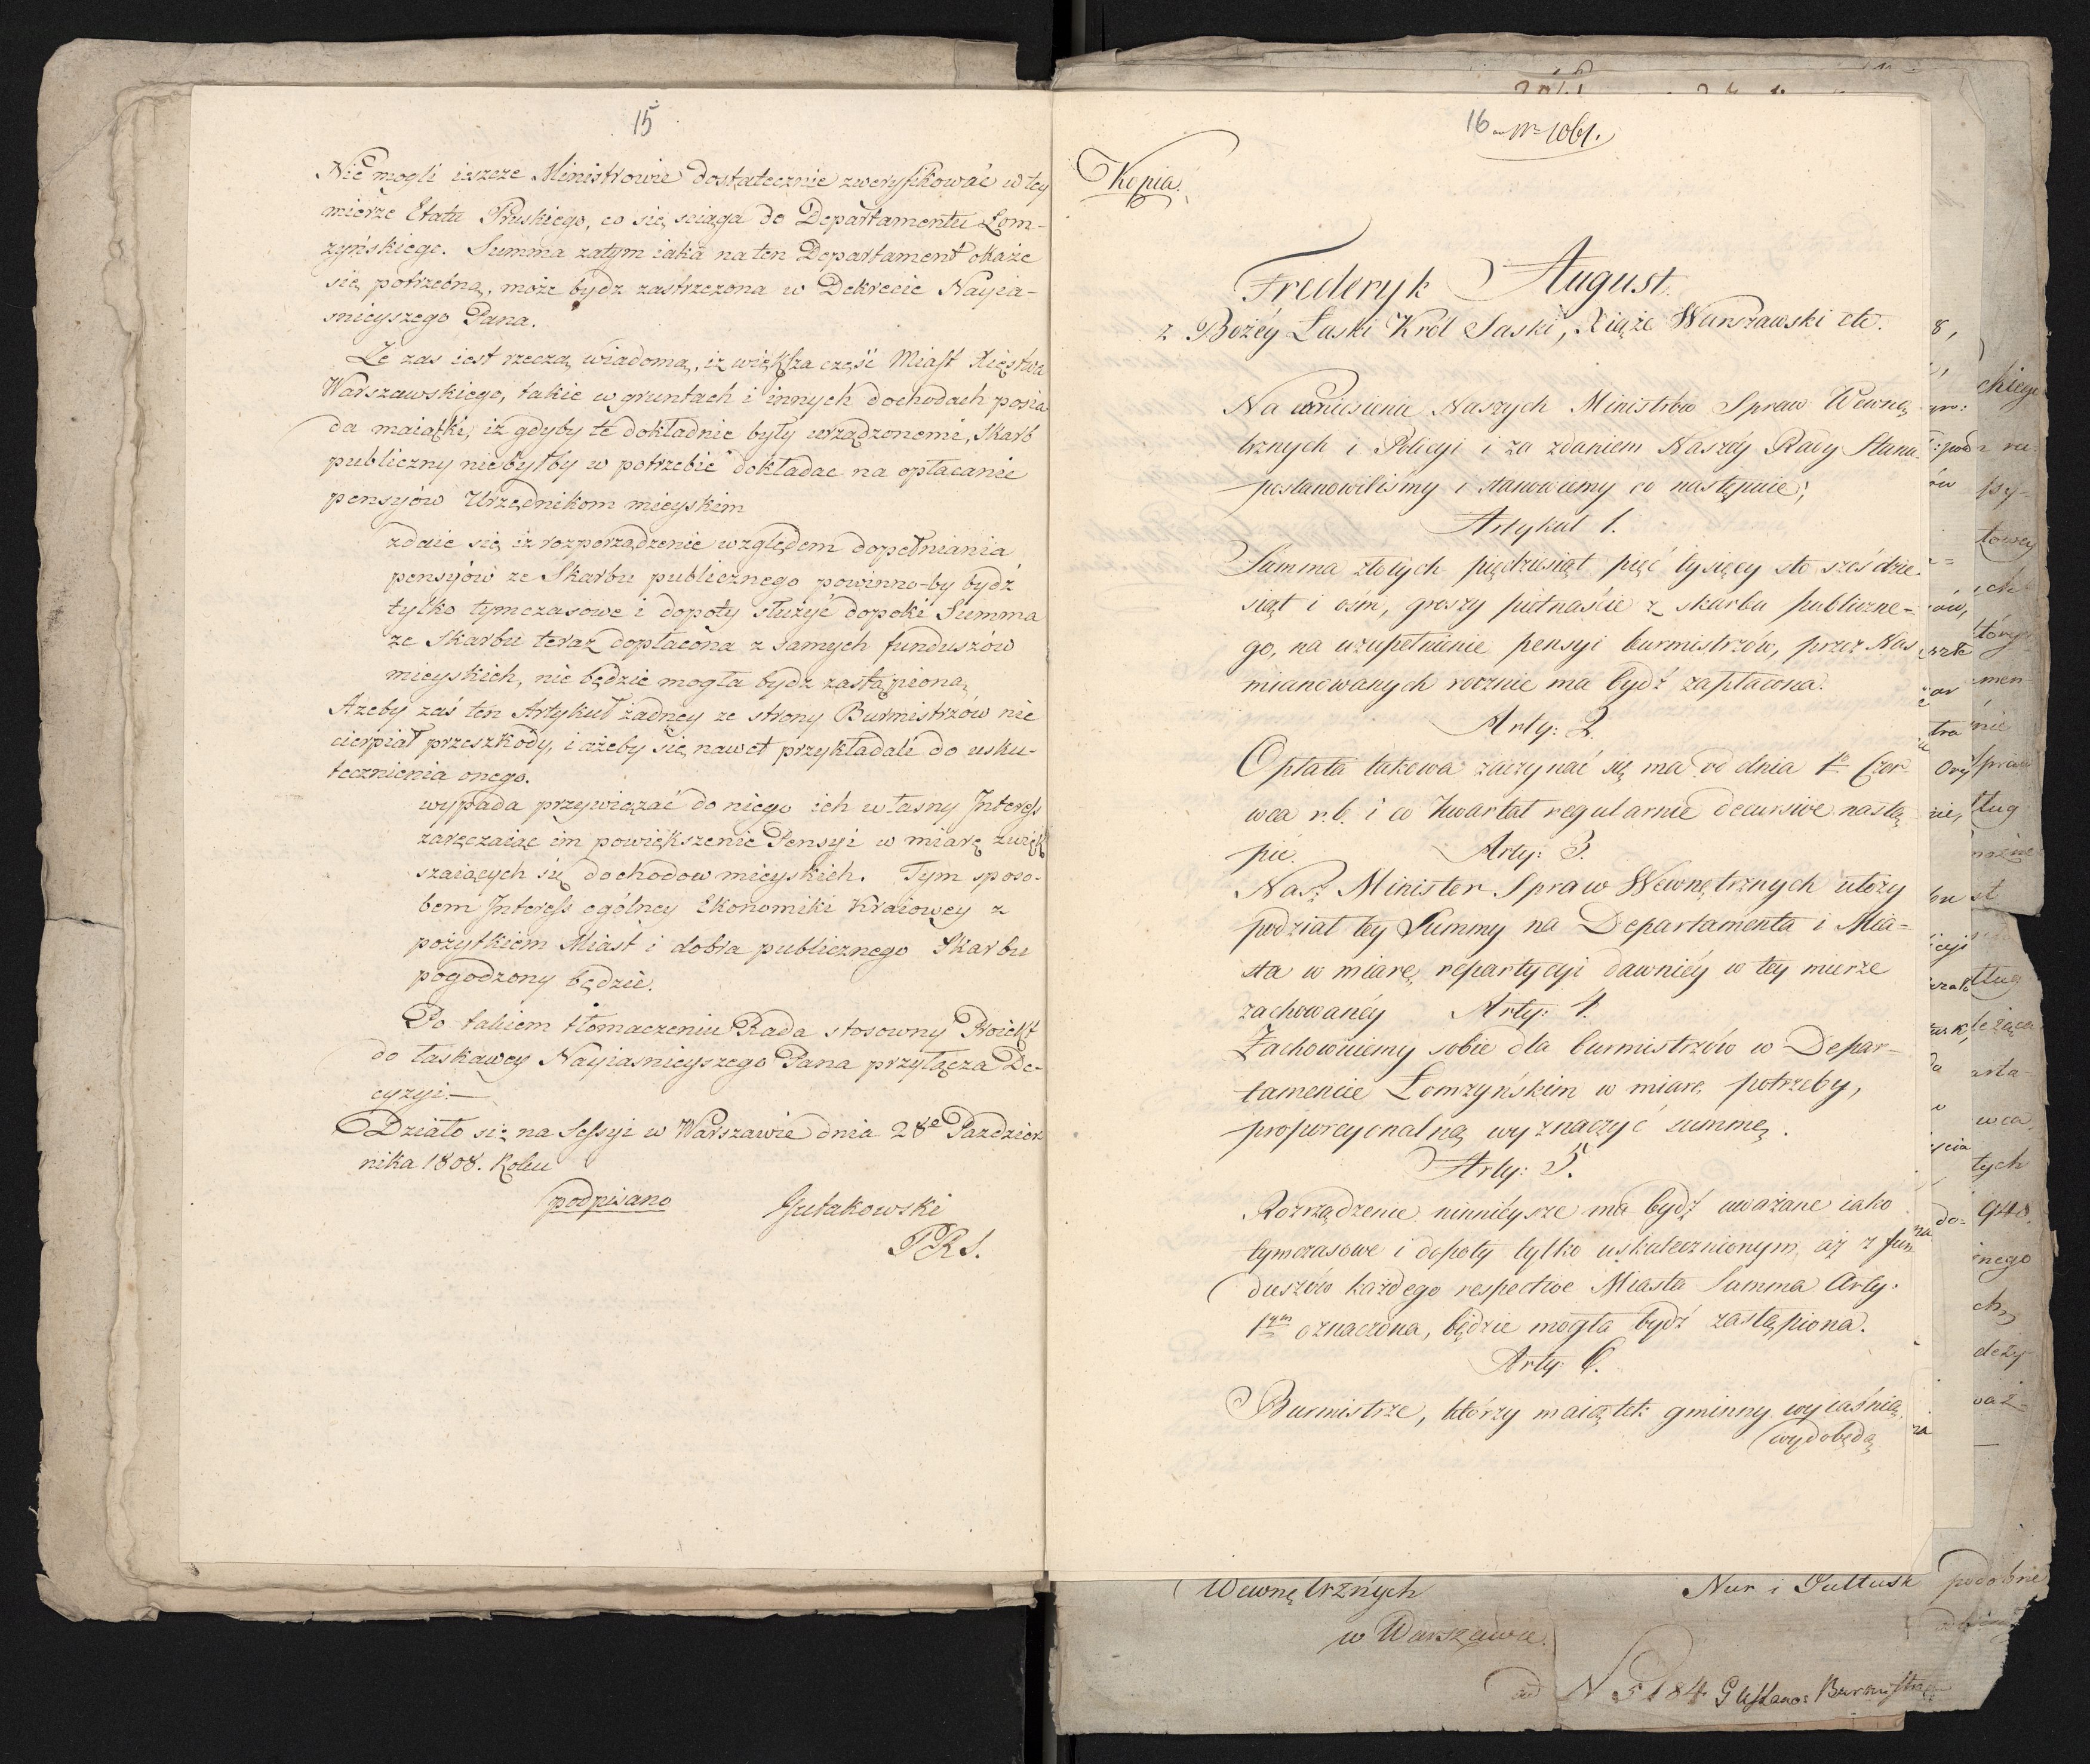 15
Nie mogli ieszcze Ministrowie dostatecznie zweryfikować w tey
mierze Etatu Pruskiego, co się sciąga do Departamentu Łom-
zyńskiego. Summa zatym iaka na ten Departament okaże
się potrzebną, może bydz zastrzeżona w Dekrecie Nayia-
snieyszego Pana.
Ze zas iest rzeczą wiadomą, iż większa część Miast Xięstwa
Warszawskiego, takie w gruntach i innych dochodach posia
da maiątki, iż gdyby te dokładnie były urządzonemi, Skarb
publiczny niebyłby w potrzebie dokładac na opłacanie
pensyów Urzędnikom mieyskim
zdaie się iż rozporządzenie względem dopełniania
pensyów ze Skarbu publicznego powinno-by bydź
tylko tymczasowe i dopoty służyć dopoki Summa
ze Skarbu teraz dopłacona z samych funduszów
mieyskich, nie będzie mogła bydz zastąpioną,
Ażeby zaś ten Artykuł żadney ze strony Burmistrzów nie
cierpiał przeszkody, i ażeby się nawet przykładali do usku-
tecznienia onego.
wypada przywiązać do niego ich własny Interess
zaręczaiąc im powiększenie Pensyi w miarę zwięk
szaiących się dochodow mieyskich. Tym sposo-
bem Interess ogólney Ekonomiki Kraiowey z
pożytkiem Miast i dobra publicznego Skarbu
pogodzony będzie.
Po takiem tłomaczeniu Rada stosowny Proiekt
do łaskawey Nayiasnieyszego Pana przyłącza De-
cyzyi.—
Działo się na Sessyi w Warszawie dnia 28e Pazdzier
nika 1808. Roku
podpisano Gutakowski
PRS.
16 ad Nro 1061.
Kopia.
Frederyk August.
z Bożéy Łaski Król Saski, Xiąże Warszawski etc.
Na wniesienie Naszych Ministrów Spraw Wewnę
trznych i Policyi i za zdaniem Naszéy Rady Stanu
postanowiliśmy i stanowiemy co następuie;
Artykuł 1.
Summa złotych pięćdziesiąt pięć tysięcy sto sześćdzie
siąt i ośm, groszy piętnaście z skarbu publiczne-
go, na uzupełnienie pensyi burmistrzów, przez Nas
mianowanych rocznie ma bydź zapłacona.
Arty: 2.
Opłata takowa zaczynać się ma od dnia 1o Czer-
wca r. b. i co kwartał regularnie decursive nastą
pi. Arty: 3.
Nasz Minister Spraw Wewnętrznych ułoży
podział tey Summy na Departamenta i Mia=
sta w miarę repartycyi dawniéy w tey mierze
zachowanéy Arty: 4.
Zachowuiemy sobie dla burmistrzów w Depar=
tamencie Łomzyńskim w miarę potrzeby,
proporcyonalną wyznaczyć summę.
Arty: 5.
Rozrządzenie ninnieysze ma bydź uważane iako
tymczasowe i dopoty tylko uskutecznionym, aż z fun
duszów każdego respective Miasta Summa Arty.
1ym oznaczona, będzie mogła bydź zastąpiona.
Arty: 6.
Burmistrze, którzy maiątek gminny wyiaśnią,
wydobędą
Wewnętrznych
w Warszawie.
Nur i Pułtusk podobnie
ad N 5184